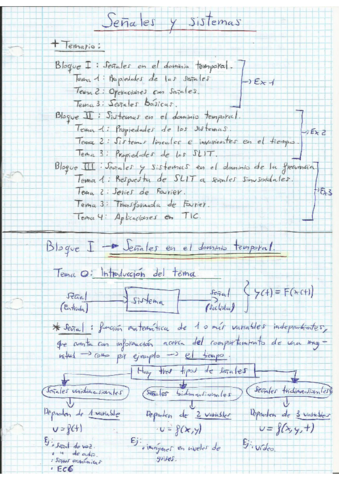 Señales y sistemas
+ Temario:
Bloque I: Señales en el dominio temporal.
Tema 1: Propiedades de las señales
Tema 2: Operaciones con señales.
Tema 3: Señales Básicas.
→ Ex 1
Bloque II: Sistemas en el dominio temporal.
Tema 1: Propiedades de los sistemas.
Tema 2: Sistemas lineales e invariantes en el tiempo.
Tema 3: Propiedades de los SLIT.
→ Ex 2
Bloque III: Señales y sistemas en el dominio de la frecuencia
Tema 1: Respuesta de SLIT a señales sinusoidales.
Tema 2: Series de Fourier.
Tema 3: Transformada de Fourier.
Tema 4: Aplicaciones en TIC.
→ Ex 3
Bloque I → Señales en el dominio temporal.
Tema 0: Introducción del tema
Señal (Entrada) → Sistema → Señal (Salida) { y(t) = F(x(t))
* Señal: función matemática de 1 o más variables independientes,
que cuenta con información acerca del comportamiento de una mag-
nitud → como por ejemplo → el tiempo
Hay tres tipos de señales
Señales unidimensionales
Señales bidimensionales
Señales tridimensionales
Dependen de 1 variable
Dependen de 2 variables
Dependen de 3 variables
u = f(t)
u = f(x,y)
u = f(x,y,t)
Ej: Señal de voz
" de audio
Señales económicas
ECG
Ej: imágenes en niveles de
grises.
Ej: vídeo.